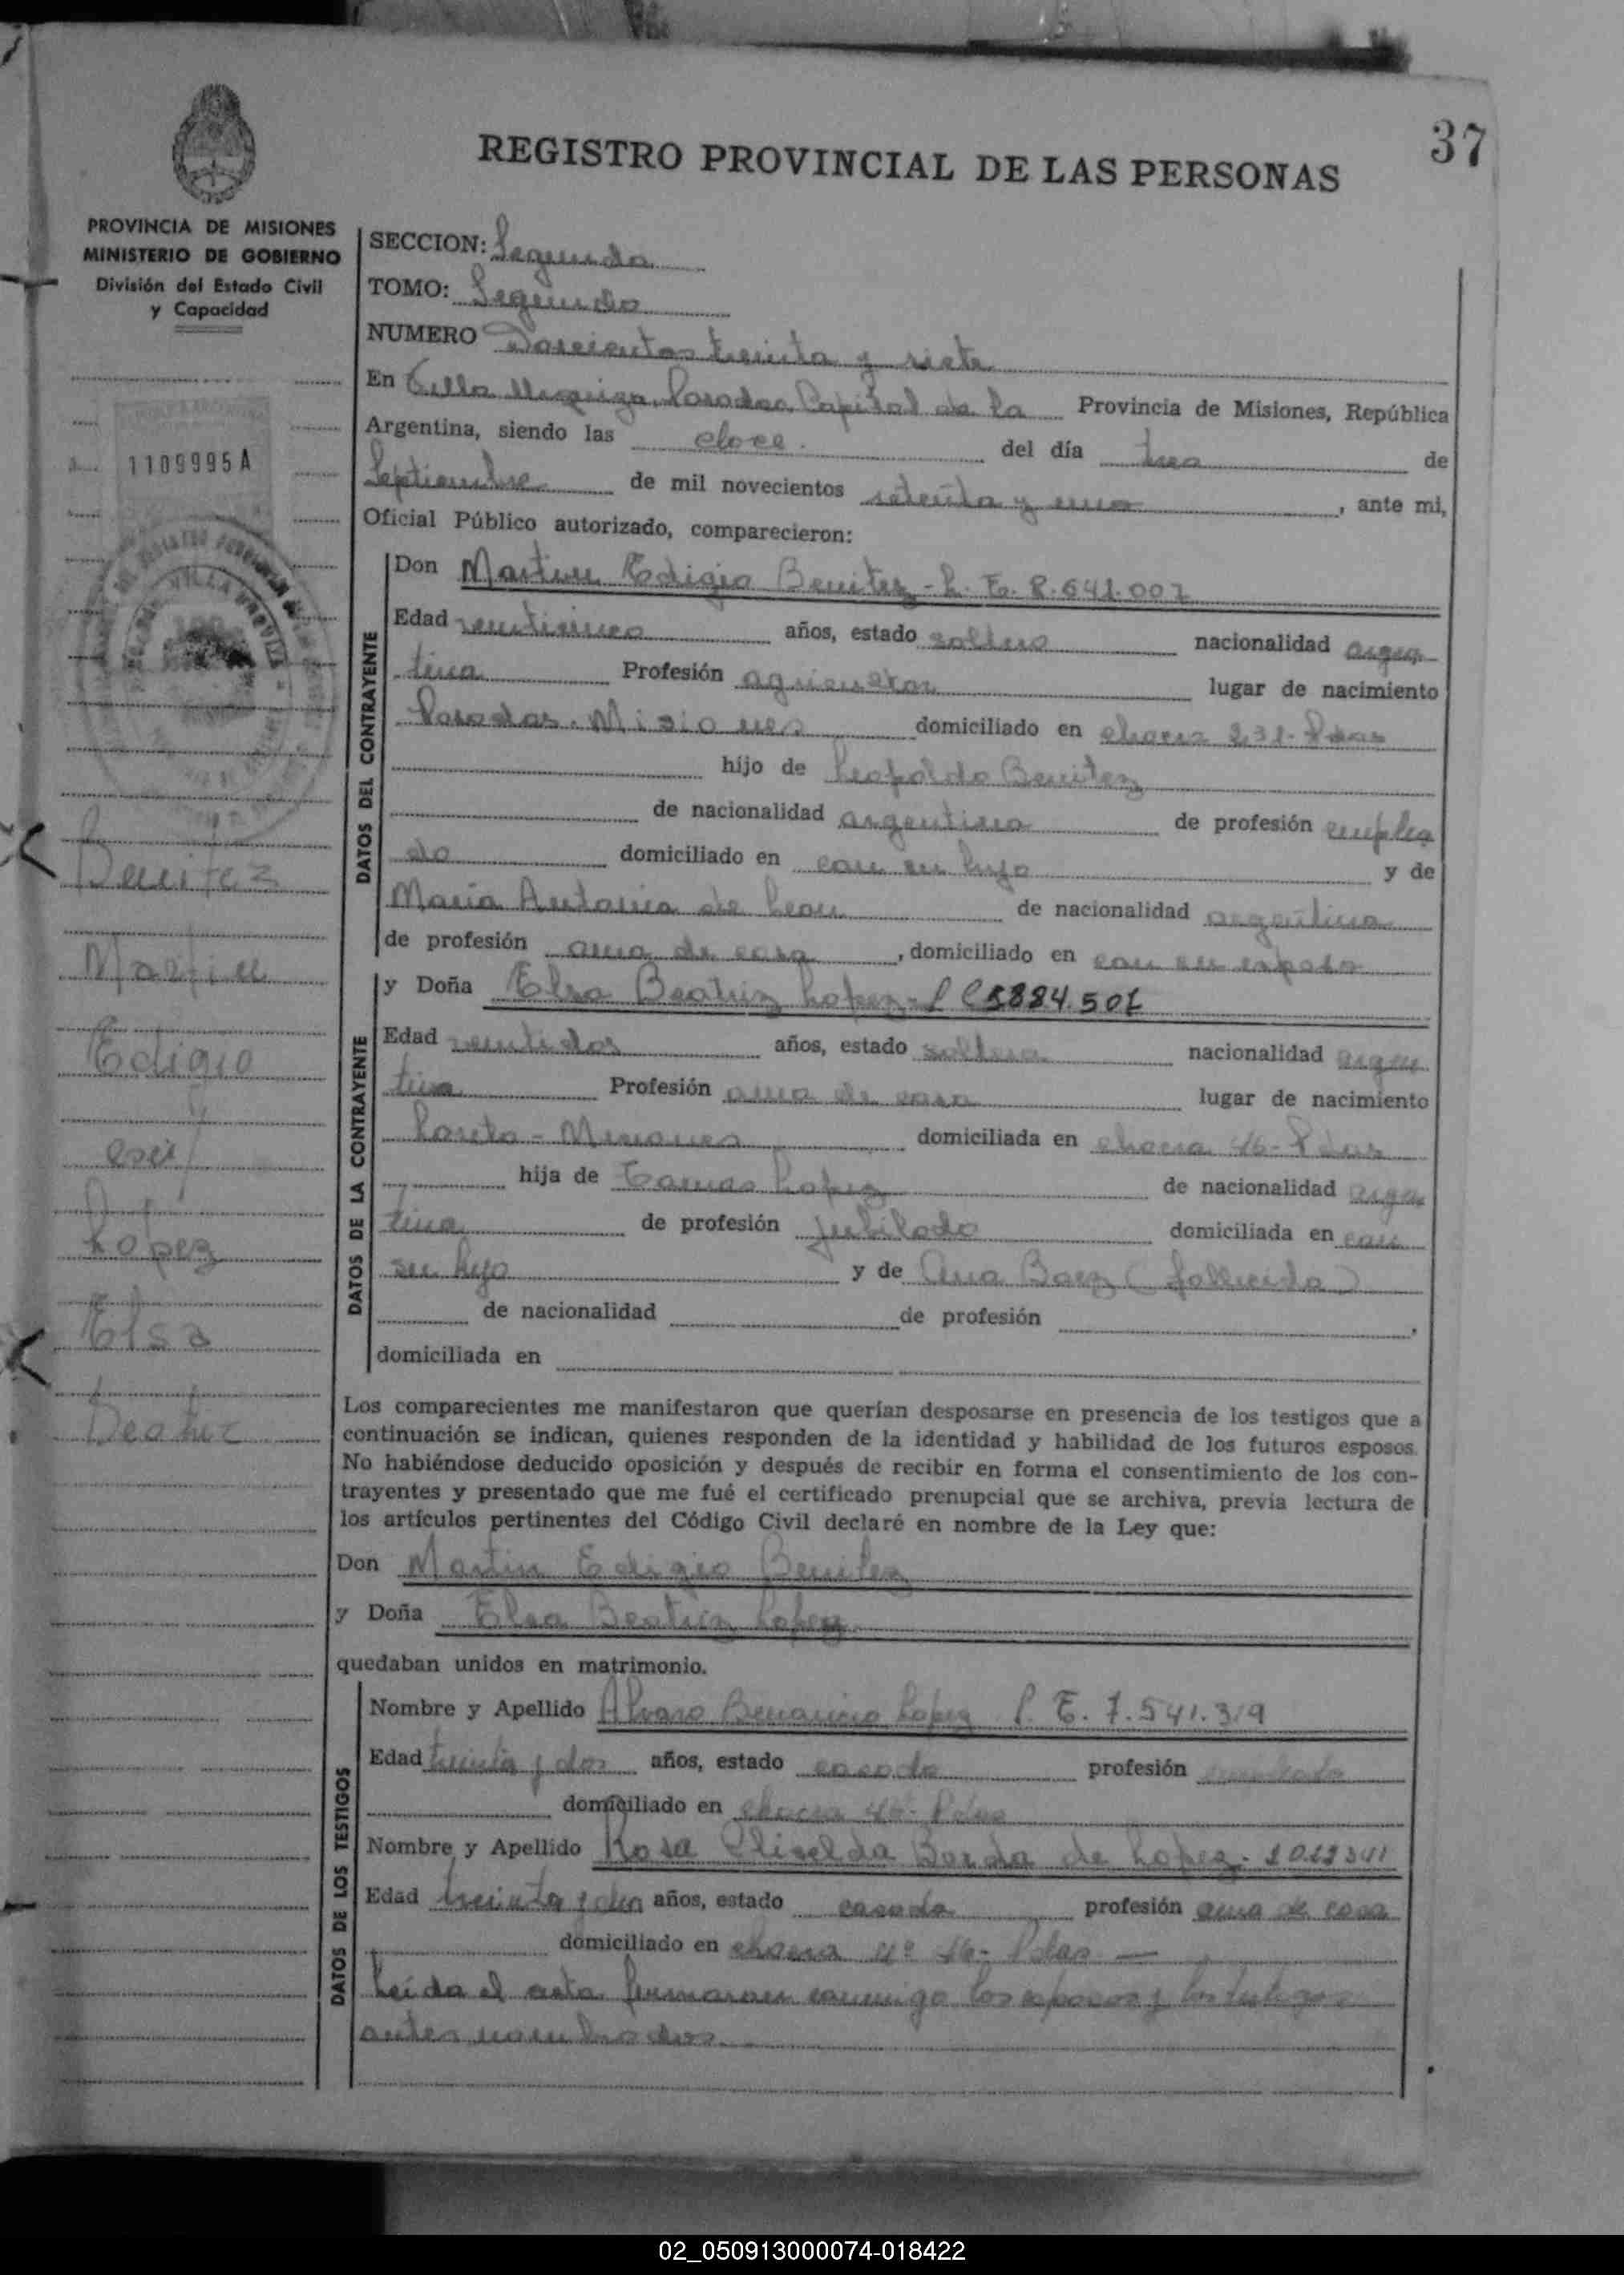 37
REGISTRO PROVINCIAL DE LAS PERSONAS
PROVINCIA DE MISIONES
MINISTERIO DE GOBIERNO
División del Estado Civil
y Capacidad
1109995A
Benitez
Martin
Edigio
con
Lopez
Elsa
Beatriz
SECCION: Segunda
TOMO: Segundo
NUMERO Doscientos treinta y siete
En Villa Urquiza, Posadas, Capital de la Provincia de Misiones, República
Argentina, siendo las doce. del día tres de
Septiembre de mil novecientos setenta y uno, ante mi,
Oficial Público autorizado, comparecieron:
DATOS DEL CONTRAYENTE
Don Martin Edigio Benitez - L. E. 8.641.007
Edad veinticinco años, estado soltero nacionalidad argen
tina Profesión agricultor lugar de nacimiento
Posadas. Misiones domiciliado en chacra 231- Pdas
hijo de Leopoldo Benitez
de nacionalidad argentino de profesión emplea
do domiciliado en con su hijo y de
Maria Antonia de Leon de nacionalidad argentina
de profesión ama de casa, domiciliado en con su esposo
DATOS DE LA CONTRAYENTE
y Doña Elsa Beatriz Lopez - L C 5884.501
Edad veintidos años, estado soltera nacionalidad argen
tina Profesión ama de casa lugar de nacimiento
Loreto - Misiones domiciliada en chacra 46- Pdas
hija de Tomas Lopez de nacionalidad argen
tina de profesión Jubilado domiciliada en con
su hija y de Ana Baez (fallecida)
de nacionalidad de profesión
domiciliada en
Los comparecientes me manifestaron que querían desposarse en presencia de los testigos que a
continuación se indican, quienes responden de la identidad y habilidad de los futuros esposos.
No habiéndose deducido oposición y después de recibir en forma el consentimiento de los con-
trayentes y presentado que me fué el certificado prenupcial que se archiva, previa lectura de
los artículos pertinentes del Código Civil declaré en nombre de la Ley que:
Don Martin Edigio Benitez
y Doña Elsa Beatriz Lopez
quedaban unidos en matrimonio.
DATOS DE LOS TESTIGOS
Nombre y Apellido Alvaro Lopez L. E. 7.541.319
Edad treinta y dos años, estado casado profesión empleado
domiciliado en chacra 46- Pdas
Nombre y Apellido Rosa Eliselda Borda de Lopez -
Edad treinta y años, estado casada profesión ama de casa
domiciliado en chacra nº 46- Pdas —
Leída el acta firmaron conmigo los esposos y los testigos
antes nombrados
02_050913000074-018422